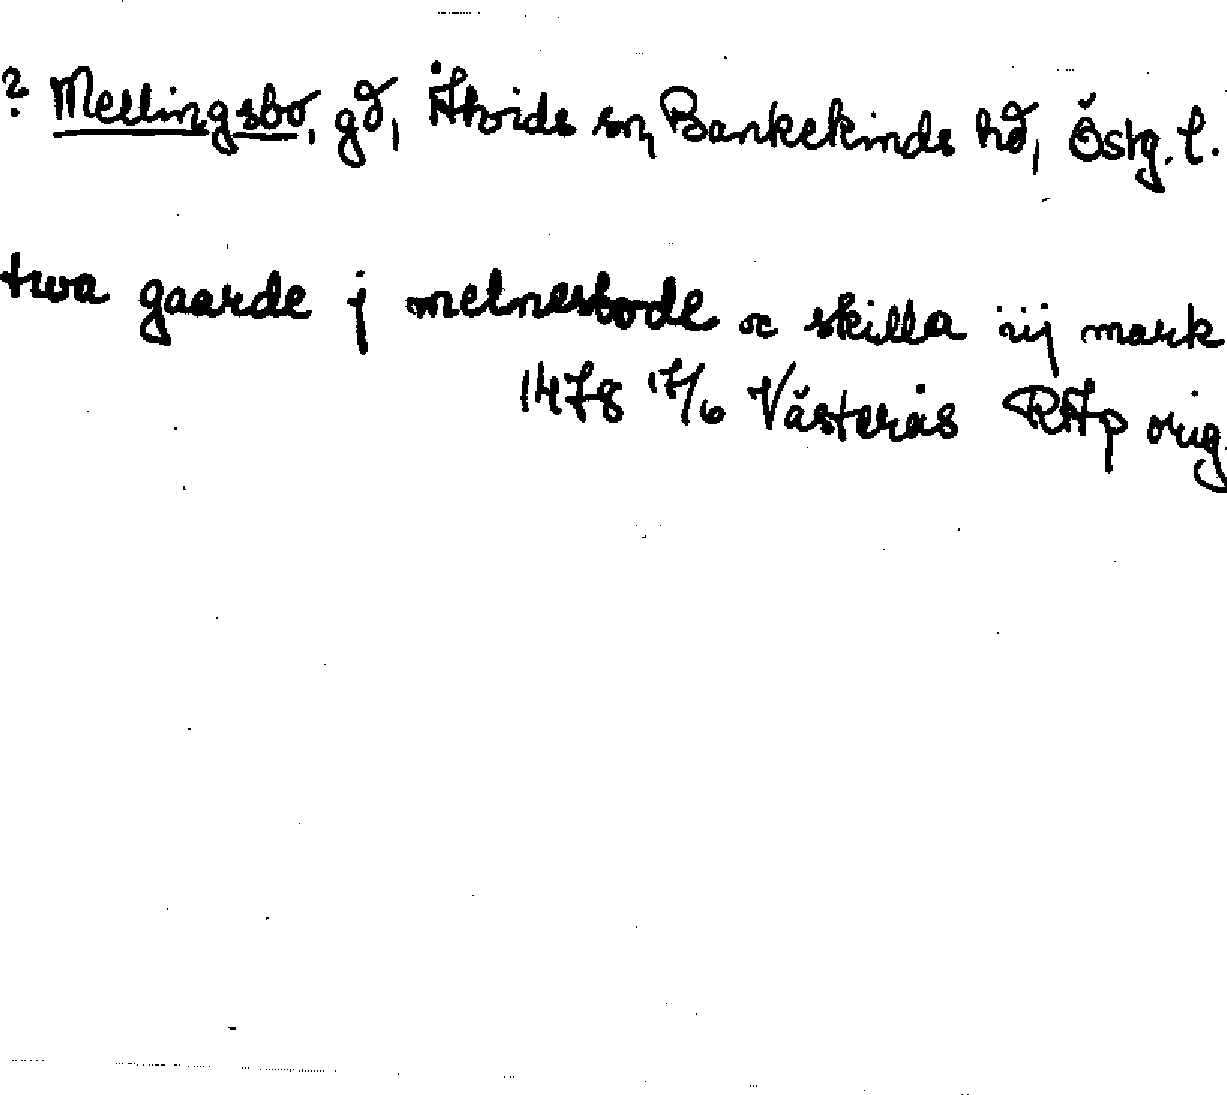 ? Mellingsbo, gd, Åtvids sn, Bankekinds hd, Östg. l.
twa gaarde j melnesbode oc skilla iij mark
1478 17/6 Västerås RAp orig.